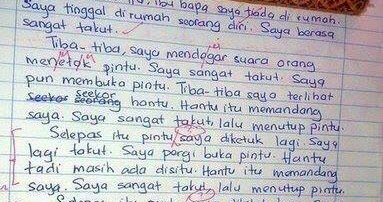 ibu bapa saya tiada di rumah.
Saya tinggal di rumah seorang diri. Saya berasa
sangat takut.
Tiba-tiba, saya mendegar suara orang
menetok pintu. Saya sangat takut. Saya
pun membuka pintu. Tiba-tiba saya terlihat
seekor
seekor seorang hantu. Hantu itu memandang
saya. Saya sangat takut lalu menutup pintu.
Selepas itu pintu saya diketuk lagi. Saya
lagi takut. Saya pergi buka pintu. Hantu
tadi masih ada disitu. Hantu itu memandang
saya. Saya sangat takut, lalu menutup pintu.